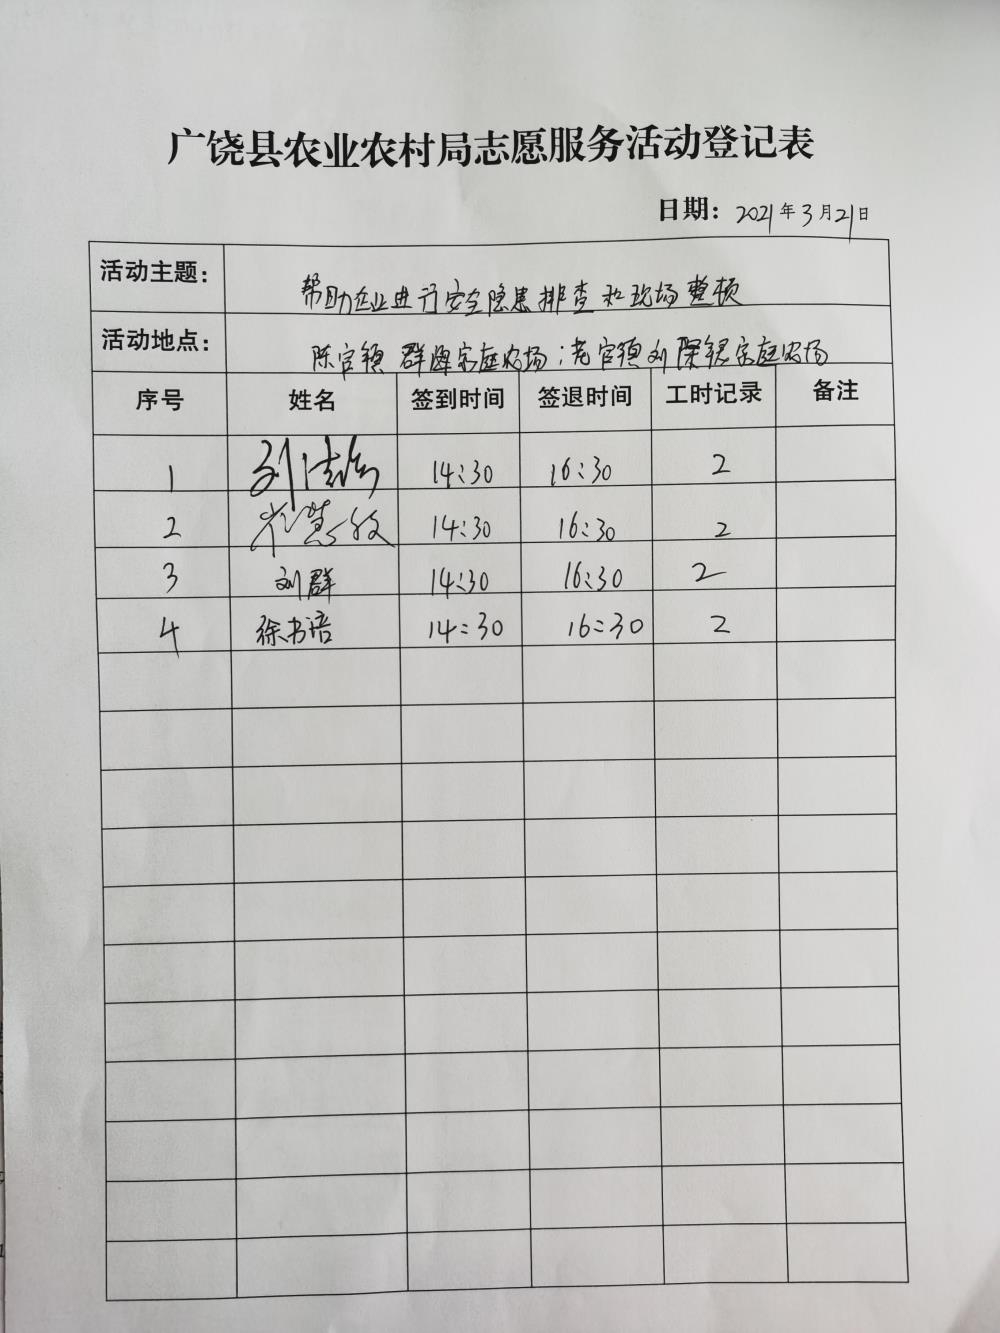 广饶县农业农村局志愿服务活动登记表
日期: 2021年3月21日
活动主题: 帮助企业进行安全隐患排查和现场整顿
活动地点: 陈官镇 家庭农场; 官镇刘 家庭农场
序号 姓名 签到时间 签退时间 工时记录 备注
1 刘 14:30 16:30 2
2 崔慧敏 14:30 16:30 2
3 刘群 14:30 16:30 2
4 徐书语 14:30 16:30 2